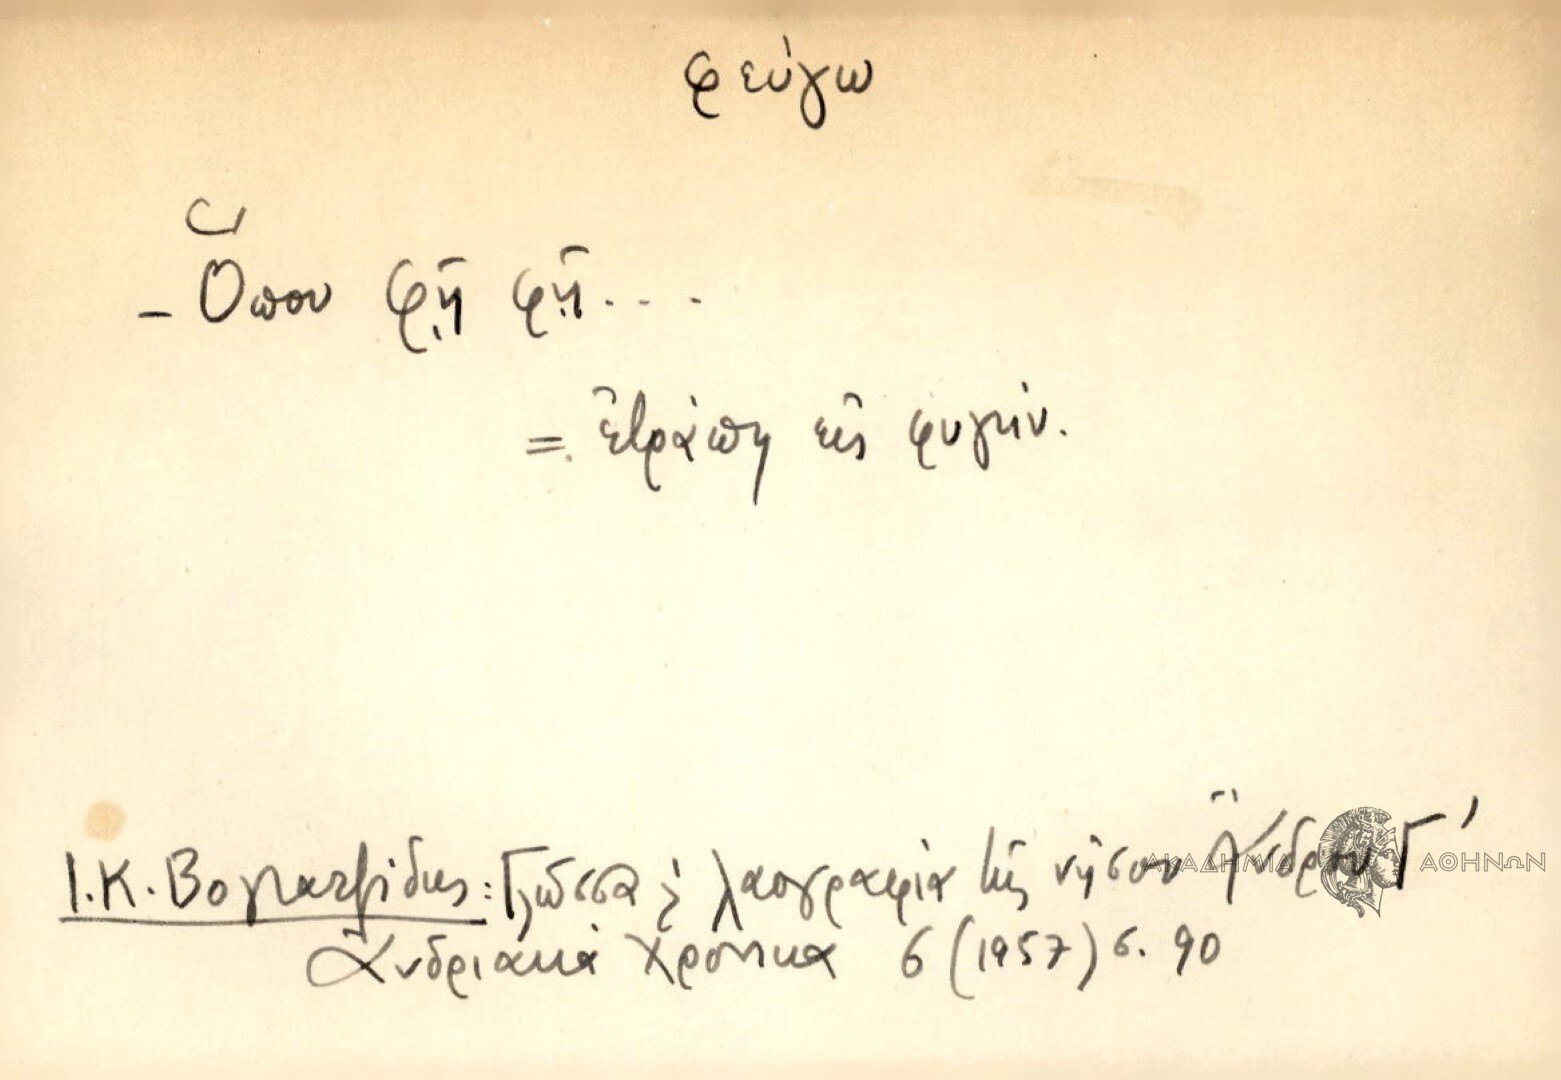 φεύγω
- Ὅπου φῄ φῄ...
= ἐτράπη εἰς φυγήν.
Ι.Κ. Βογιατζίδης: Γλῶσσα & λαογραφία τῆς νήσου Ἄνδρου Γ'
Ἀνδριακά Χρονικά 6 (1957) σ. 90
ΑΚΑΔΗΜΙΑ ΑΘΗΝΩΝ